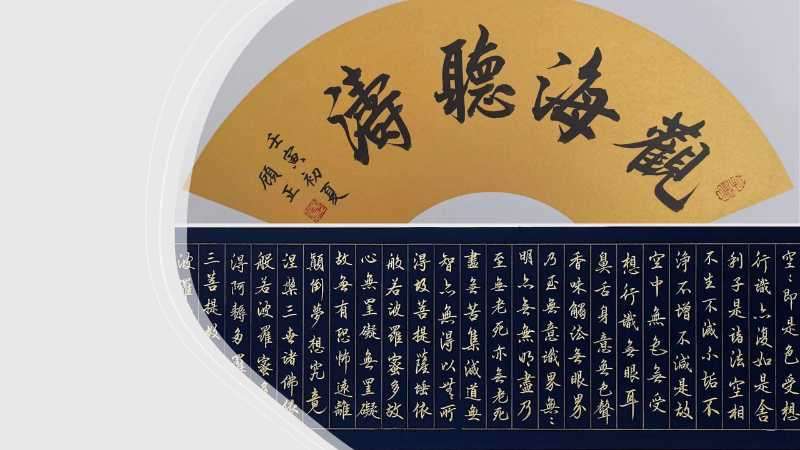 觀海聽濤
壬寅初夏
顧正
空〻即是色受想
行識亦復如是舍
利子是諸法空相
不生不滅不垢不
淨不增不減是故
空中無色無受
想行識無眼耳
鼻舌身意無色聲
香味觸法無眼界
乃至無意識界無〻
明亦無無明盡乃
至無老死亦無老死
盡無苦集滅道無
智亦無得以無所
得故菩提薩埵依
般若波羅蜜多故
心無罣礙無罣礙
故無有恐怖遠離
顛倒夢想究竟
涅槃三世諸佛依
般若波羅蜜多
得阿耨多羅
三菩提故
波羅